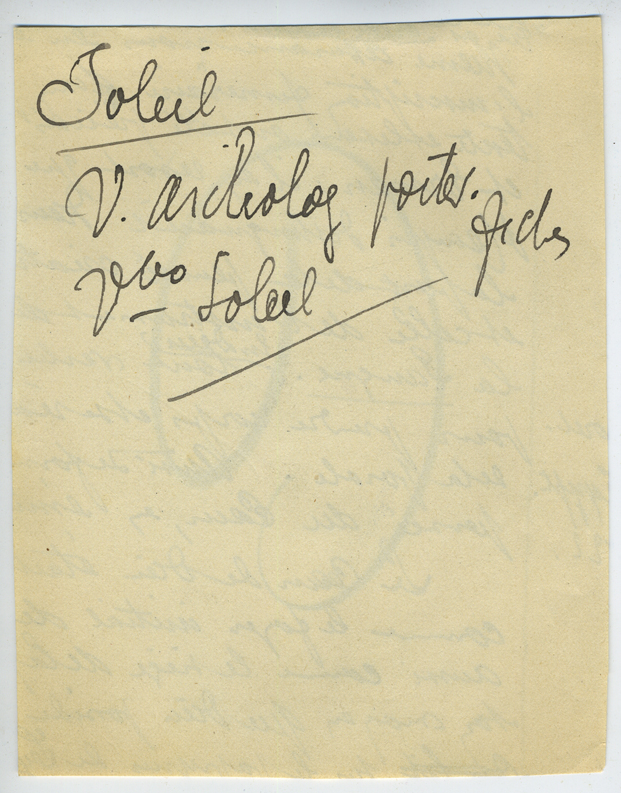 Soleil
V. archeolog poster. fiches
Vbo Soleil